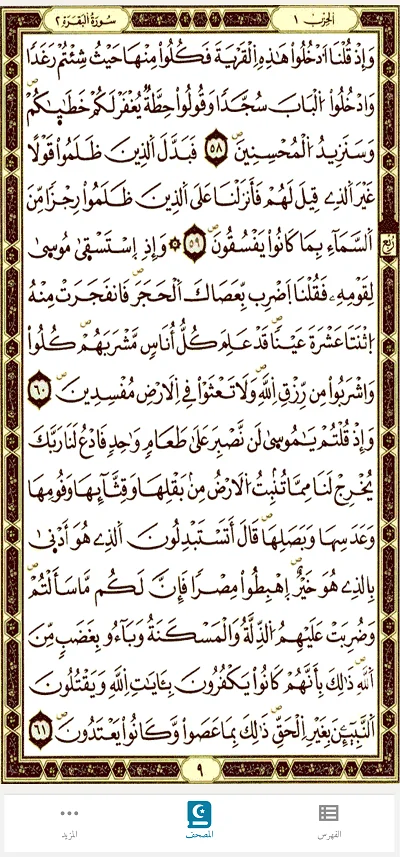 الحزب ١
سورة البقرة ٢
وَإِذْ قُلْنَا اَدْخُلُواْ هَٰذِهِ اِلْقَرْيَةَ فَكُلُواْ مِنْهَا حَيْثُ شِئْتُمْ رَغَدًا
وَادْخُلُواْ اُلْبَابَ سُجَّدًا وَقُولُواْ حِطَّةٌ يُغْفَرْ لَكُمْ خَطَٰيَٰكُمْ
وَسَنَزِيدُ اُلْمُحْسِنِينَ ٥٨ فَبَدَّلَ اَلذِينَ ظَلَمُواْ قَوْلًا
غَيْرَ اَلذِے قِيلَ لَهُمْ فَأَنزَلْنَا عَلَى اَلذِينَ ظَلَمُواْ رِجْزًا مِّنَ
اَلسَّمَآءِ بِمَا كَانُواْ يَفْسُقُونَ ٥٩ ۞ وَإِذِ اِسْتَسْقىٰ مُوسىٰ
لِقَوْمِهِۦ فَقُلْنَا اَضْرِب بِّعَصَاكَ اَلْحَجَرَ فَانفَجَرَتْ مِنْهُ
اُثْنَتَا عَشْرَةَ عَيْنًا قَدْ عَلِمَ كُلُّ أُنَاسٍ مَّشْرَبَهُمْ كُلُواْ
وَاشْرَبُواْ مِن رِّزْقِ اِللَّهِ وَلَا تَعْثَوْاْ فِے اِلَارْضِ مُفْسِدِينَ ٦٠
وَإِذْ قُلْتُمْ يَٰمُوسىٰ لَن نَّصْبِرَ عَلَىٰ طَعَامٍ وَٰحِدٍ فَادْعُ لَنَا رَبَّكَ
يُخْرِجْ لَنَا مِمَّا تُنۢبِتُ اُلَارْضُ مِنۢ بَقْلِهَا وَقِثَّآئِهَا وَفُومِهَا
وَعَدَسِهَا وَبَصَلِهَا قَالَ أَتَسْتَبْدِلُونَ اَلذِے هُوَ أَدْنىٰ
بِالذِے هُوَ خَيْرٌ اِهْبِطُواْ مِصْرًا فَإِنَّ لَكُم مَّا سَأَلْتُمْ
وَضُرِبَتْ عَلَيْهِمُ اُلذِّلَّةُ وَالْمَسْكَنَةُ وَبَآءُو بِغَضَبٍ مِّنَ
اَللَّهِ ذَٰلِكَ بِأَنَّهُمْ كَانُواْ يَكْفُرُونَ بِـَٔايَٰتِ اِللَّهِ وَيَقْتُلُونَ
اَلنَّبِيٓـِٕينَ بِغَيْرِ اِلْحَقِّ ذَٰلِكَ بِمَا عَصَواْ وَّكَانُواْ يَعْتَدُونَ ٦١
ربع
٩
الفهرس
المصحف
المزيد